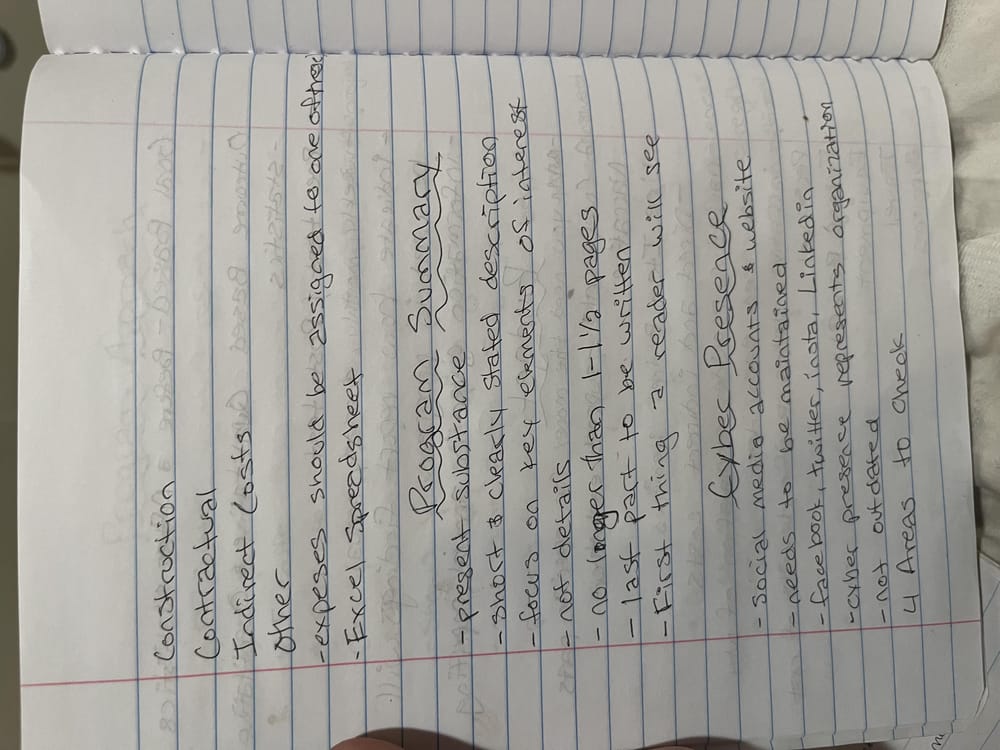 Construction
Contractual
Indirect Costs
Other
- expeses should be assigned to one of these
- Excel spreadsheet
Program Summary
- present substance
- short & clearly stated description
- focus on key elements of interest
- not details
- no longer than 1-1 1/2 pages
- last part to be written
- First thing a reader will see
Cyber Presence
- social media accounts & website
- needs to be maintained
- facebook, twitter, insta, Linkedin
- cyber presence represents organization
- not outdated
4 Areas to check